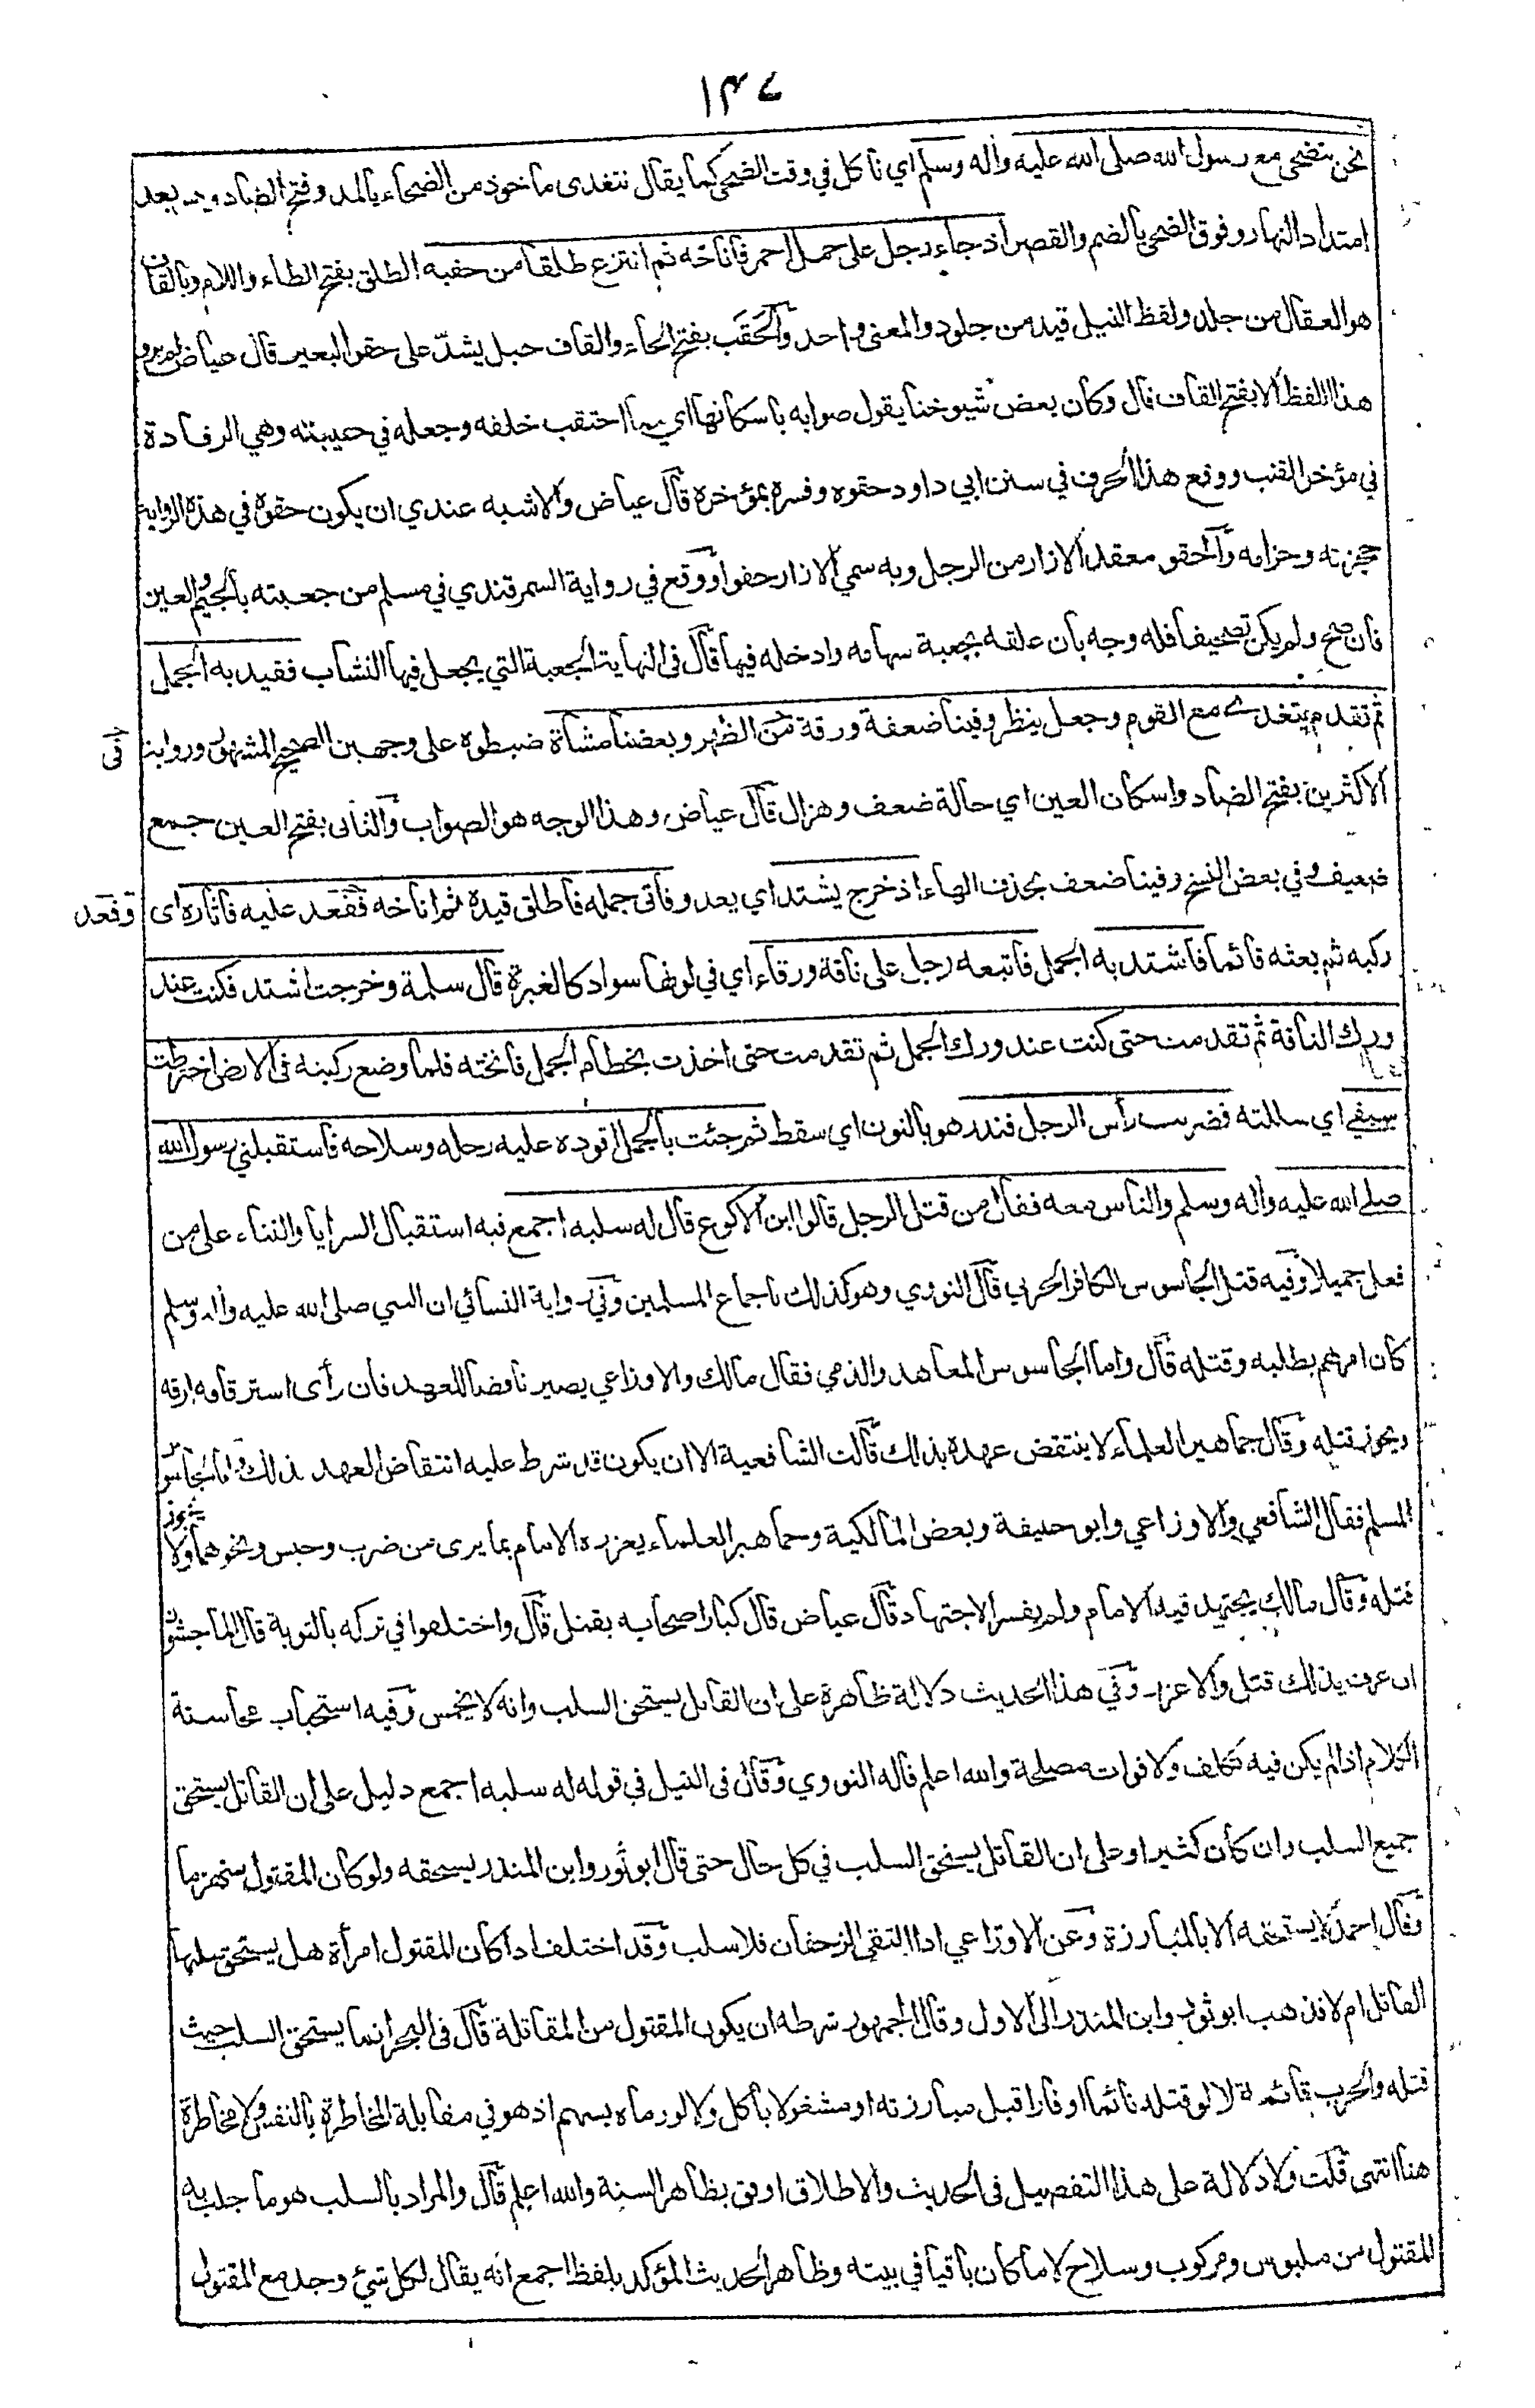 ١٤٧
نحن نتضحى مع رسول الله صلى الله عليه واله وسلم اي ناكل في وقت الضحى كما يقال نتغدى ماخوذ من الضحاء بالمد وفتح الضاد وهو بعد
امتداد النهار وفوق الضحى بالضم والقصر اذ جاء رجل على جمل احمر فأناخه ثم انتزع طلقا من حقبه الطلق بفتح الطاء واللام وبالقاف
هو العقال من جلد ولفظ النيل قيد من جلود والمعنى واحد والحقب بفتح الحاء والقاف حبل يشدّ على حقو البعير قال عياض لم يرو
هذا اللفظ الا بفتح القاف قال وكان بعض شيوخنا يقول صوابه باسكانها اي مما احتقب خلفه وجعله في حقيبته وهي الرفادة
في مؤخر القتب ووقع هذا الحرف في سنن ابي داود حقوه وفسره بمؤخره قال عياض والاشبه عندي ان يكون حقوه في هذه الرواية
حجزته وحزامه والحقو معقد الازار من الرجل وبه سمي الازار حقوا ووقع في رواية السمرقندي في مسلم من جعبته بالجيم والعين
فان صح ولم يكن تصحيفا فله وجه بان علقه بجعبة سهامه وادخله فيها قال في النهاية الجعبة التي يجعل فيها النشاب فقيد به الجمل
ثم تقدم يتغدى مع القوم وجعل ينظر وفينا ضعفة ورقة من الظهر وبعضنا مشاة ضبطوه على وجهين الصحيح المشهور ورواية
الاكثرين بفتح الضاد واسكان العين اي حالة ضعف وهزال قال عياض وهذا الوجه هو الصواب والثانى بفتح العين جمع
ضعيف وفي بعض النسخ وفينا ضعف بحذف الهاء اذ خرج يشتد اي يعدو فأتى جمله فأطلق قيده ثم اناخه فقعد عليه فأثاره اى
وقعد
ركبه ثم بعثه قائما فاشتد به الجمل فاتبعه رجل على ناقة ورقاء اي في لونها سواد كالغبرة قال سلمة وخرجت اشتد فكنت عند
ورك الناقة ثم تقدمت حتى كنت عند ورك الجمل ثم تقدمت حتى اخذت بخطام الجمل فانخته فلما وضع ركبته فى الارض اخترطت
سيفي اي سللته فضربت رأس الرجل فندر هو بالنون اي سقط ثم جئت بالجمل اقوده عليه رحله وسلاحه فاستقبلني رسول الله
صلى الله عليه واله وسلم والناس معه فقال من قتل الرجل قالوا ابن الاكوع قال له سلبه اجمع فيه استقبال السرايا والثناء على من
فعل جميلا وفيه قتل الجاسوس الكافر الحربي قال النووي وهو كذلك باجماع المسلمين وفي رواية النسائي ان النبي صلى الله عليه واله وسلم
كان امرهم بطلبه وقتله قال واما الجاسوس المعاهد والذمي فقال مالك والاوزاعي يصير ناقضا للعهد فان رأى استرقاقه ارقه
ويجوز قتله وقال جماهير العلماء لا ينتقض عهده بذلك قالت الشافعية الا ان يكون قد شرط عليه انتقاض العهد بذلك واما الجاسوس
المسلم فقال الشافعي والاوزاعي وابو حنيفة وبعض المالكية وجماهير العلماء يعزره الامام بما يرى من ضرب وحبس ونحوهما ولا يجوز
قتله وقال مالك يجتهد فيه الامام ولم يفسر الاجتهاد قال عياض قال كبار اصحابه يقتل قال واختلفوا في تركه بالتوبة قال الماجشون
ان عرف بذلك قتل والا عزر وفي هذا الحديث دلالة ظاهرة على ان القاتل يستحق السلب وانه لا يخمس وفيه استحباب مجانسة
الكلام اذا لم يكن فيه تكلف ولا فوات مصلحة والله اعلم قاله النووي وقال فى النيل في قوله له سلبه اجمع دليل على ان القاتل يستحق
جميع السلب وان كان كثيرا وعلى ان القاتل يستحق السلب في كل حال حتى قال ابو ثور وابن المنذر يستحقه ولو كان المقتول منهزما
وقال احمد لا يستحقه الا بالمبارزة وعن الاوزاعي اذا التقى الزحفان فلا سلب وقد اختلف اذا كان المقتول امرأة هل يستحق سلبها
القاتل ام لا فذهب ابو ثور وابن المنذر الى الاول وقال الجمهور شرطه ان يكون المقتول من المقاتلة قال فى البحر انما يستحق السلب حيث
قتله والحرب قائمة لا لو قتله نائما او فارا قبل مبارزته او مشغولا بأكل ولا لو رماه بسهم اذ هو في مقابلة المخاطرة بالنفس ولا مخاطرة
هنا انتهى قلت ولا دلالة على هذا التفصيل فى الحديث والاطلاق اوفق بظاهر السنة والله اعلم قال والمراد بالسلب هو ما جلب به
المقتول من ملبوس ومركوب وسلاح لا ما كان باقيا في بيته وظاهر الحديث المؤكد بلفظ اجمع انه يقال لكل شيء وجد مع المقتول